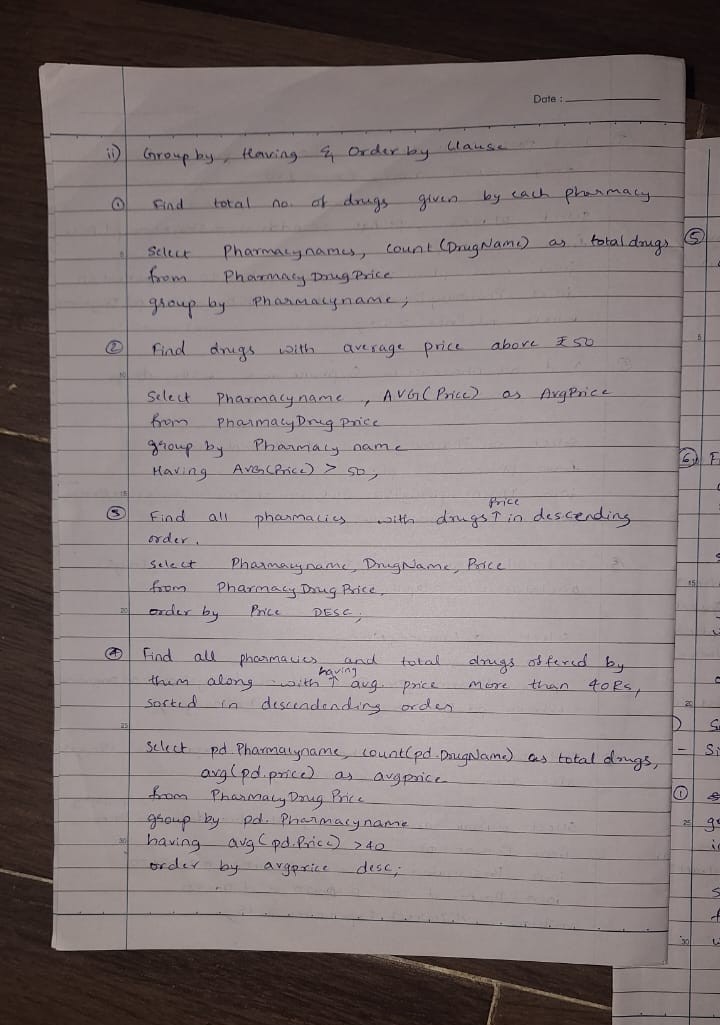 Date :
ii) Group by, Having & Order by Clause
① Find total no. of drugs given by each pharmacy
Select Pharmacynames, count (DrugName) as total drugs
from Pharmacy Drug Price
group by Pharmacyname;
② Find drugs with average price above ₹50
Select Pharmacyname, AVG(Price) as AvgPrice
from PharmacyDrug Price
group by Pharmacy name
Having AVG(Price) > 50;
③ Find all pharmacies with drugs ↑ Price in descending
order.
Select Pharmacyname, DrugName, Price
from Pharmacy Drug Price,
order by Price DESC;
④ Find all pharmacies and total drugs offered by
them along with ↑ having avg. price more than 40Rs,
sorted in descendending order
Select pd.Pharmacyname, count(pd.DrugName) as total drugs,
avg(pd.price) as avgprice
from Pharmacy Drug Price
group by pd. Pharmacyname
having avg(pd.Price) >40
order by avgprice desc;
⑤
⑥
①